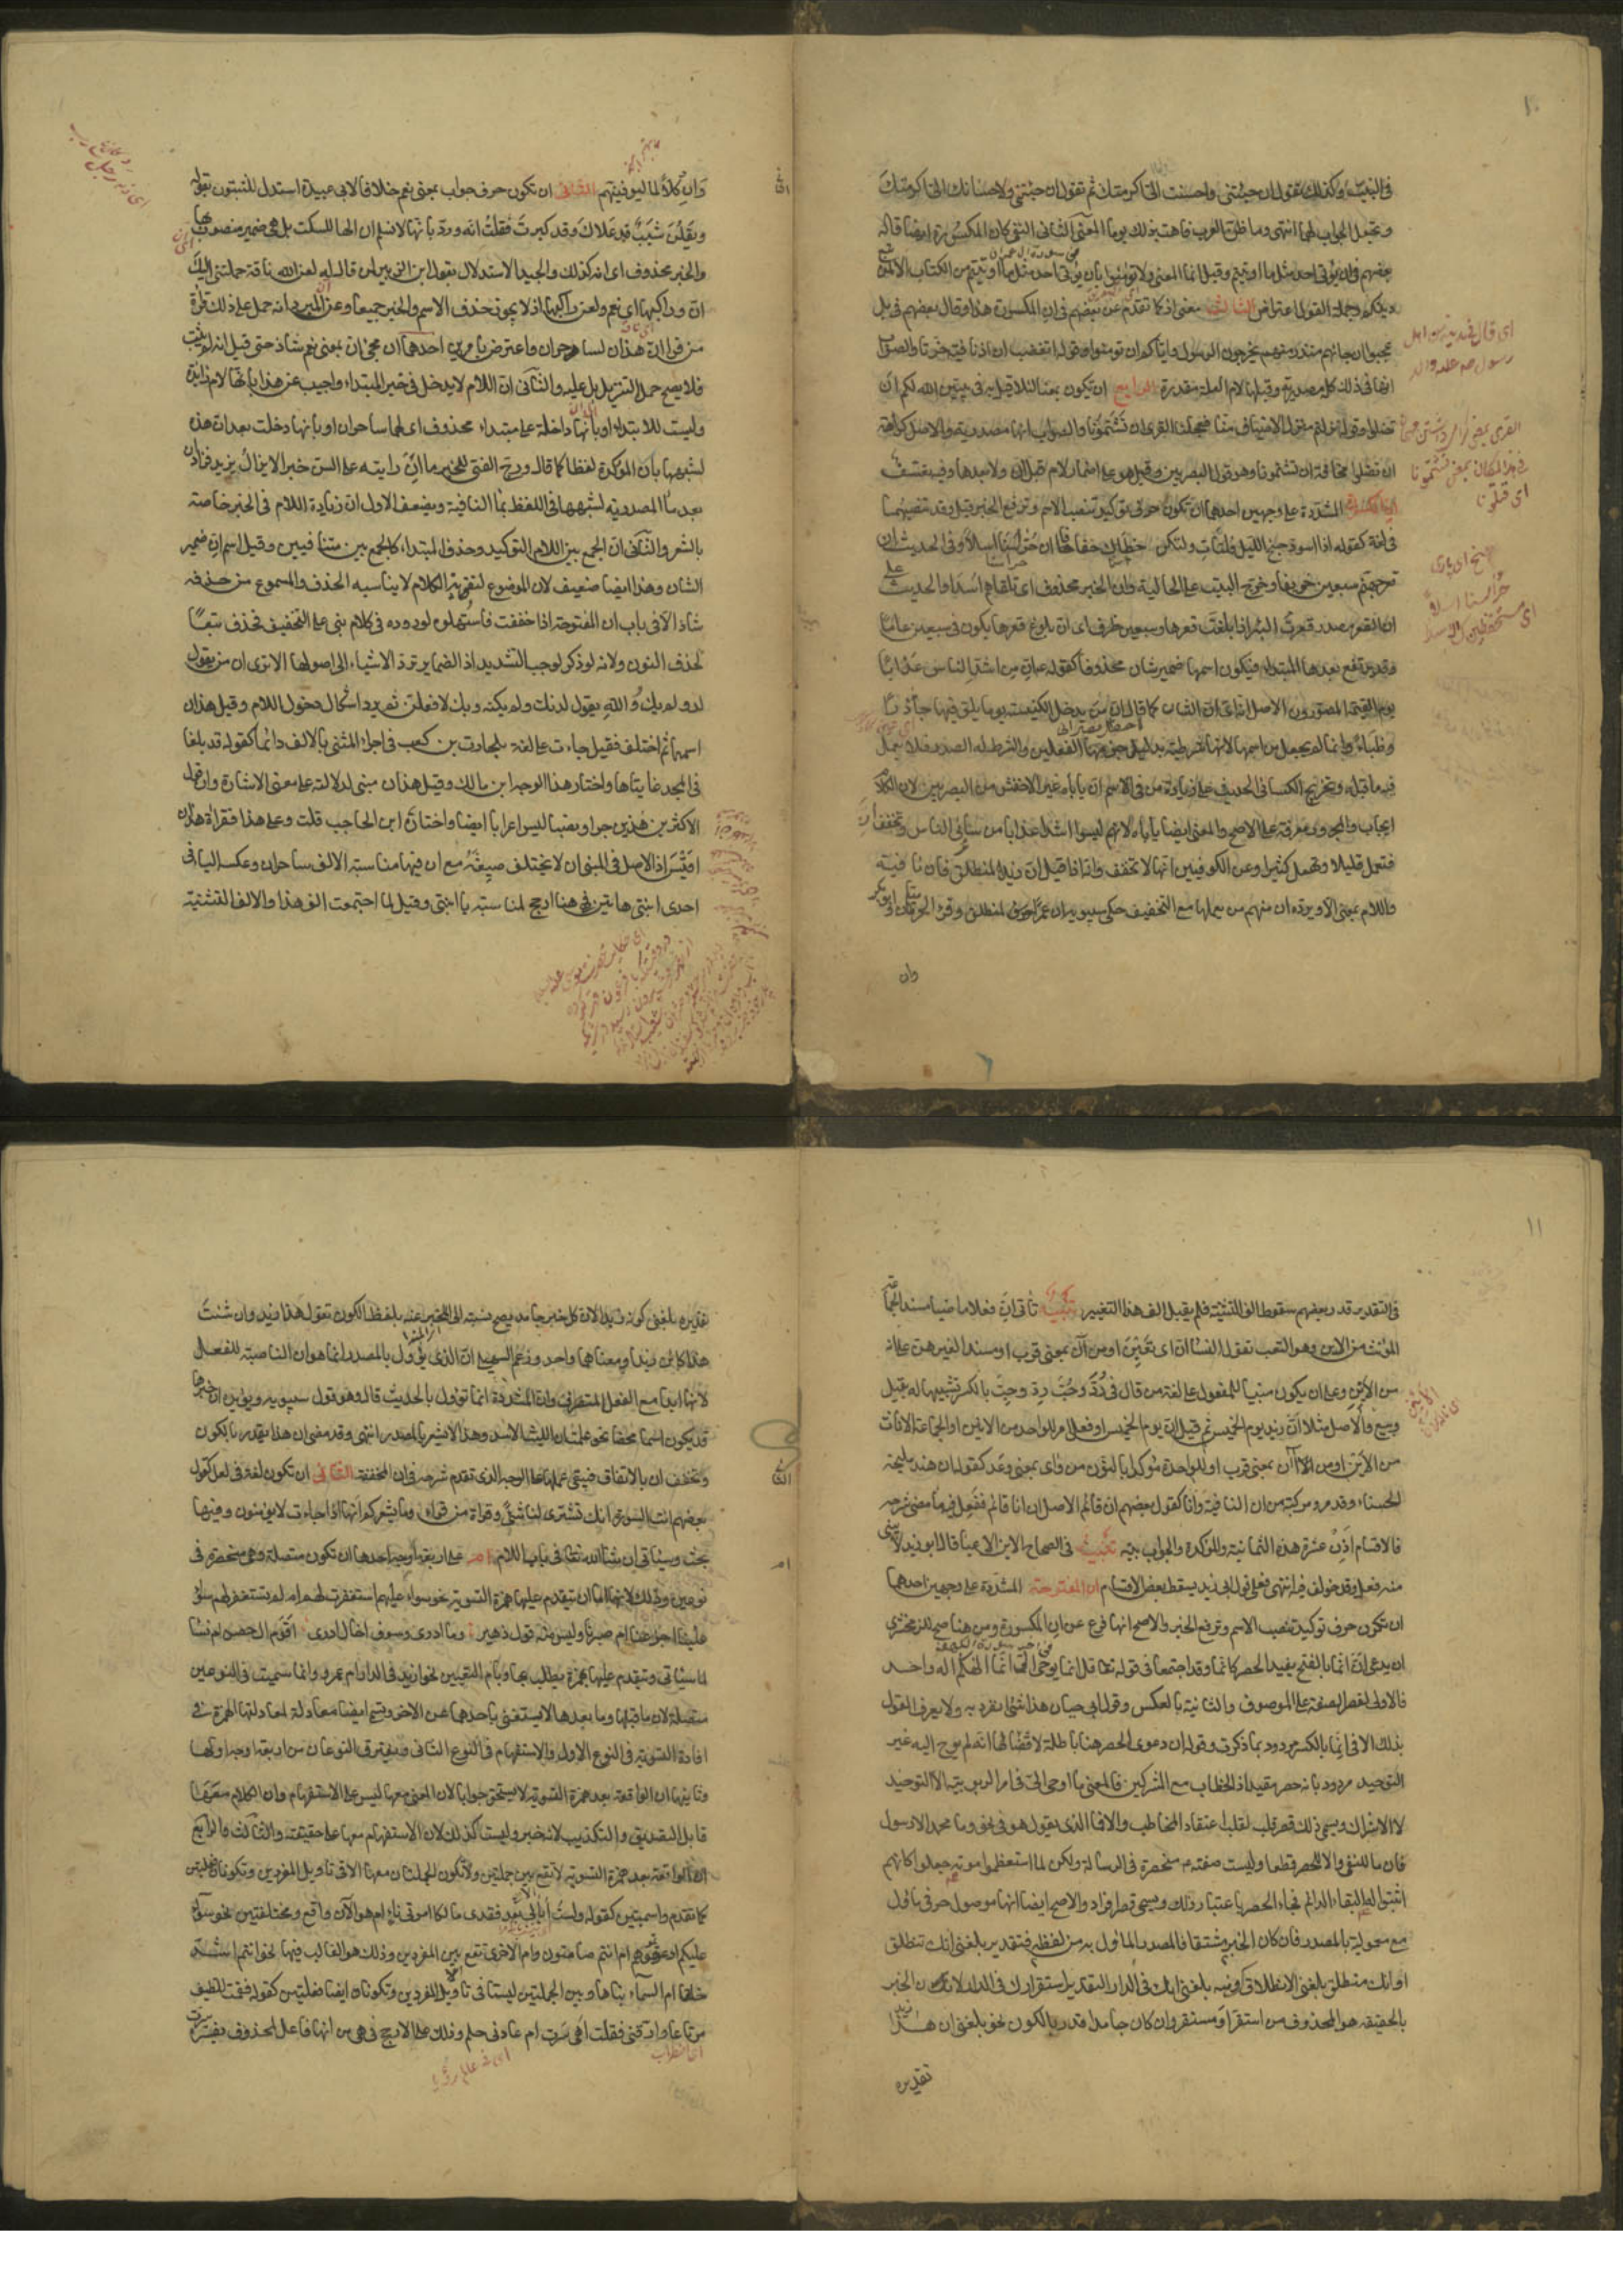 ١٠
في التثبت وكذلك تقول ان جئتني واحسنت الي اكرمتك ثم تقول ان جئتني ولاحسانك الي اكرمتك
وتجعل الجواب لهما انتهى وما اظن العرب فاهت بذلك يوما المعنى الثاني النفي كان المكسورة ايضا قاله
بعضهم في ان يؤتى احد مثل ما اوتيتم وقيل انما المعنى ولا تؤمنوا بان يؤتى احد مثل ما اوتيتم من الكتاب الا لمن
دينكم وجملة القول اعتراض الثالث معنى اذ كما تقدم عن بعضهم في ان المكسورة هذا وقال بعضهم في بل
عجبوا ان جاءهم منذر منهم يخرجون الرسول واياكم ان تؤمنوا وقوله اتغضب ان اذنا قتيبة حزتا والصواب
انها في ذلك كله مصدرية وقبلها لام العلة مقدرة الرابع ان تكون بمعنى لئلا قيل به في يبين الله لكم ان
تضلوا وقوله نزلتم منزل الاضياف منا فعجلنا القرى ان تشتمونا والصواب انها مصدرية والاصل كراهة
ان تضلوا مخافة ان تشتمونا وهو قول البصريين وقيل هو على اضمار لام قبل ان ولا بعدها وفيه تعسف
ان المشددة على وجهين احدهما ان تكون حرف توكيد تنصب الاسم وترفع الخبر قيل وقد تنصبهما
في لغة كقوله اذا اسود جنح الليل فلتأت ولتكن خطاك خفافا ان حراسنا اسدا وفي الحديث ان
قعر جهنم سبعين خريفا وخرج البيت على الحالية وان الخبر محذوف اي تلقاهم اسدا والحديث على
ان القعر مصدر قعرت البئر اذا بلغت قعرها وسبعين ظرف اي ان بلوغ قعرها يكون في سبعين عاما
وقد يرتفع بعدها المبتدا فيكون اسمها ضمير شان محذوفا كقوله عم ان من اشد الناس عذابا
يوم القيمة المصورون الاصل انه اي ان الشان كما قال ان من يدخل الكنيسة يوما يلق فيها جاذرا
وظباء وانما لم يجعل من اسمها لانها شرطية بدليل جزمها الفعلين والشرط له الصدر فلا يعمل
فيه ما قبله وتخريج الكسائي الحديث على زيادة من في الاسم ان يأباه غير الاخفش من البصريين لان الكلام
ايجاب والمجرور معرفة على الاصح والمعنى ايضا يأباه لانهم ليسوا اشد عذابا من سائر الناس وتخفف ان
فتعمل قليلا وتهمل كثيرا وعن الكوفيين انها لا تخفف وانه اذا قيل ان زيد لمنطلق فان نافية
واللام بمعنى الا ويرده ان منهم من يعملها مع التخفيف حكى سيبويه ان عمرا لمنطلق وقرأ الحرميان وابو بكر
وان
وان كلا لما ليوفينهم الثاني ان تكون حرف جواب بمعنى نعم خلافا لابي عبيدة استدل المثبتون بقوله
ويقلن شيب قد علاك وقد كبرت فقلت انه ورد بانها لا نسلم ان الها للسكت بل هي ضمير منصوب بها
والخبر محذوف اي انه كذلك والجيد الاستدلال بقول ابن الزبير لمن قال له لعن الله ناقة حملتني اليك
ان وراكبها اي نعم ولعن راكبها اذ لا يجوز حذف الاسم والخبر جميعا وعن المبرد انه حمل على ذلك قراءة
من قرا ان هذان لساحران واعترض بامرين احدهما ان مجئ ان بمعنى نعم شاذ حتى قيل انه لم يثبت
فلا يصح حمل التنزيل عليه والثاني ان اللام لا يدخل في خبر المبتداء واجيب عن هذا بانها لام زايدة
وليست للابتداء او بانها داخلة على مبتداء محذوف اي لهما ساحران او بانها دخلت بعد ان هذه
لشبهها بان المؤكدة لفظا كما قال ورج الفتى للخير ما ان رايته على السن خيرا لا يزال يزيد فزاد ان
بعد ما المصدرية لشبهها في اللفظ بما النافية ويضعف الاول ان زيادة اللام في الخبر خاصة
بالشعر والثاني ان الجمع بين اللام التوكيد وحذف المبتداء كالجمع بين متنافيين وقيل اسم ان ضمير
الشان وهذا ايضا ضعيف لان الموضوع لتقوية الكلام لا يناسبه الحذف والمسموع من حذفه
شاذ الا في باب ان المفتوحة اذا خففت فاستسهلوه لوروده في كلام بني على التخفيف فحذف تبعا
لحذف النون ولانه لو ذكر لوجب التشديد اذ الضماير ترد الاشياء الى اصولها الا ترى ان من يقول
لد ولم يك والله يقول لدنك ولم يكنه وبك لافعلن ثم يرد اشكال دخول اللام وقيل هذان
اسمها ثم اختلف فقيل جاءت على لغة بلحارث بن كعب في اجراء المثنى بالالف دائما كقوله قد بلغا
في المجد غايتاها واختار هذا الوجه ابن مالك وقيل هذان مبني لدلالته على معنى الاشارة وان قول
الاكثرين هذين جرا ونصبا ليس اعرابا ايضا واختاره ابن الحاجب قلت وعلى هذا فقراءة هذان
اقيس اذ الاصل في المبني ان لا يختلف صيغه مع ان فيها مناسبة الالف ساحران وعكسه الياء في
احدى ابنتي هاتين فهي هنا ارجح لمناسبة ياء ابنتي وقيل لما اجتمعت الف هذا والالف التثنية
١١
في التقدير قدر بعضهم سقوط الف التثنية فلم يقبل الف هذا التغيير تنبيه تاتي ان فعلا ماضيا مسندا لجماعة
المؤنث من الاين وهو التعب تقول النساء ان اي تعبن او من آن بمعنى قرب او مسندا لغيرهن على انه
من الانين وعلى ان يكون مبنيا للمفعول على لغة من قال في رد وحب رد وحب بالكسر تشبيها له بقيل
وبيع والاصل مثلا ان زيد يوم الخميس ثم قيل ان يوم الخميس او فعل امر للواحد من الانين او لجماعة الاناث
من الاين او من آن بمعنى قرب او للواحدة مؤكدا بالنون من واى بمعنى وعد كقوله ان هند المليحة
الحسناء وقد مر ومركبة من ان النافية وانا كقول بعضهم ان قائم الاصل ان انا قائم ففعل فيه ما مضى شرحه
فالاقسام اذن عشرة هذه الثمانية والمؤكدة والجوابية تنبيه في الصحاح الاين الاعياء قال ابو زيد لا يبنى
منه فعل وقد خولف فيه انتهى فعلى قول ابي زيد يسقط بعض الاقسام ان المفتوحة المشددة على وجهين احدهما
ان تكون حرف توكيد تنصب الاسم وترفع الخبر والاصح انها فرع عن ان المكسورة ومن هنا صح للزمخشري
ان يدعي ان انما بالفتح يفيد الحصر كانما وقد اجتمعتا في قوله تعالى قل انما يوحى الي انما الهكم اله واحد
فالاولى لقصر الصفة على الموصوف والثانية بالعكس وقول ابي حيان هذا شئ انفرد به ولا يعرف القول
بذلك الا في انما بالكسر مردود بما ذكرت وقوله ان دعوى الحصر هنا باطلة لاقتضائها انه لم يوح اليه غير
التوحيد مردود بانه حصر مقيد اذ الخطاب مع المشركين فالمعنى ما اوحي الي في امر الربوبية الا التوحيد
لا الاشراك ويسمى ذلك قصر قلب لقلب اعتقاد المخاطب والا فما الذي يقول هو في نحو وما محمد الا رسول
فان ما للنفي والا للحصر قطعا وليست صفته عم منحصرة في الرسالة ولكن لما استعظموا موته جعلوا كانهم
اثبتوا له البقاء الدائم فجاء الحصر باعتبار ذلك ويسمى قصر افراد والاصح ايضا انها موصول حرفي ماول
مع معموليه بالمصدر فان كان الخبر مشتقا فالمصدر الماول به من لفظه فتقدير بلغني انك تنطلق
او انك منطلق بلغني الانطلاق ومنه بلغني انك في الدار التقدير استقرارك في الدار لان الخبر
بالحقيقة هو المحذوف من استقر او مستقر وان كان جامدا قدر بالكون نحو بلغني ان هذا زيد
تقديره
تقديره بلغني كونه زيدا لان كل خبر جامد يصح نسبته الى المخبر عنه بلفظ الكون تقول هذا زيد وان شئت
هذا كائن زيدا ومعناهما واحد وزعم السهيلي ان الذي يؤول بالمصدر انما هو ان الناصبة للفعل
لانها ابدا مع الفعل المتصرف وان المشددة انما تؤول بالحديث قال وهو قول سيبويه ويؤيده ان خبرها
قد يكون اسما محضا نحو علمت ان الليث الاسد وهذا لا يشعر بالمصدر انتهى وقد مضى ان هذا يقدر بالكون
وتخفف ان بالاتفاق فيبقى عملها على الوجه الذي تقدم شرحه في ان المخففة الثاني ان تكون لغة في لعل كقول
بعضهم ائت السوق انك تشتري لنا شيئا وقراءة من قراء وما يشعركم انها اذا جاءت لا يؤمنون وفيها
بحث وسيأتي ان شاء الله تعالى في باب اللام ام على اربعة اوجه احدها ان تكون متصلة وهي منحصرة في
نوعين وذلك لانها اما ان تتقدم عليها همزة التسوية نحو سواء عليهم استغفرت لهم ام لم تستغفر لهم سواء
علينا اجزعنا ام صبرنا وليس منه قول زهير وما ادري وسوف اخال ادري اقوم ال حصن ام نساء
لما سيأتي وتتقدم عليها همزة يطلب بها وبام التعيين نحو ازيد في الدار ام عمرو وانما سميت في النوعين
متصلة لان ما قبلها وما بعدها لا يستغنى باحدهما عن الاخر وتسمى ايضا معادلة لمعادلتها الهمزة في
افادة التسوية في النوع الاول والاستفهام في النوع الثاني ويفترق النوعان من اربعة اوجه اولها
وثانيها ان الواقعة بعد همزة التسوية لا يستحق جوابا لان المعنى معها ليس على الاستفهام وان الكلام معها
قابل التصديق والتكذيب لانه خبر وليست كذلك لان الاستفهام معها على حقيقته والثالث والرابع
ان الواقعة بعد همزة التسوية لا تقع بين جملتين ولا تكون الجملتان معها الا في تاويل المفردين وتكونان فعليتين
كما تقدم واسميتين كقوله ولست ابالي بعد فقدي مالكا اموتي ناء ام هو الان واقع ومختلفتين نحو سواء
عليكم ادعوتموهم ام انتم صامتون وام الاخرى تقع بين المفردين وذلك هو الغالب فيها نحو اانتم اشد
خلقا ام السماء بناها وبين الجملتين ليستا في تاويل المفردين وتكونان ايضا فعليتين كقوله فقمت للطيف
مرتاعا وارقني فقلت اهي سرت ام عادني حلم وذلك على الارجح في هي من انها فاعل لمحذوف يفسره سرت